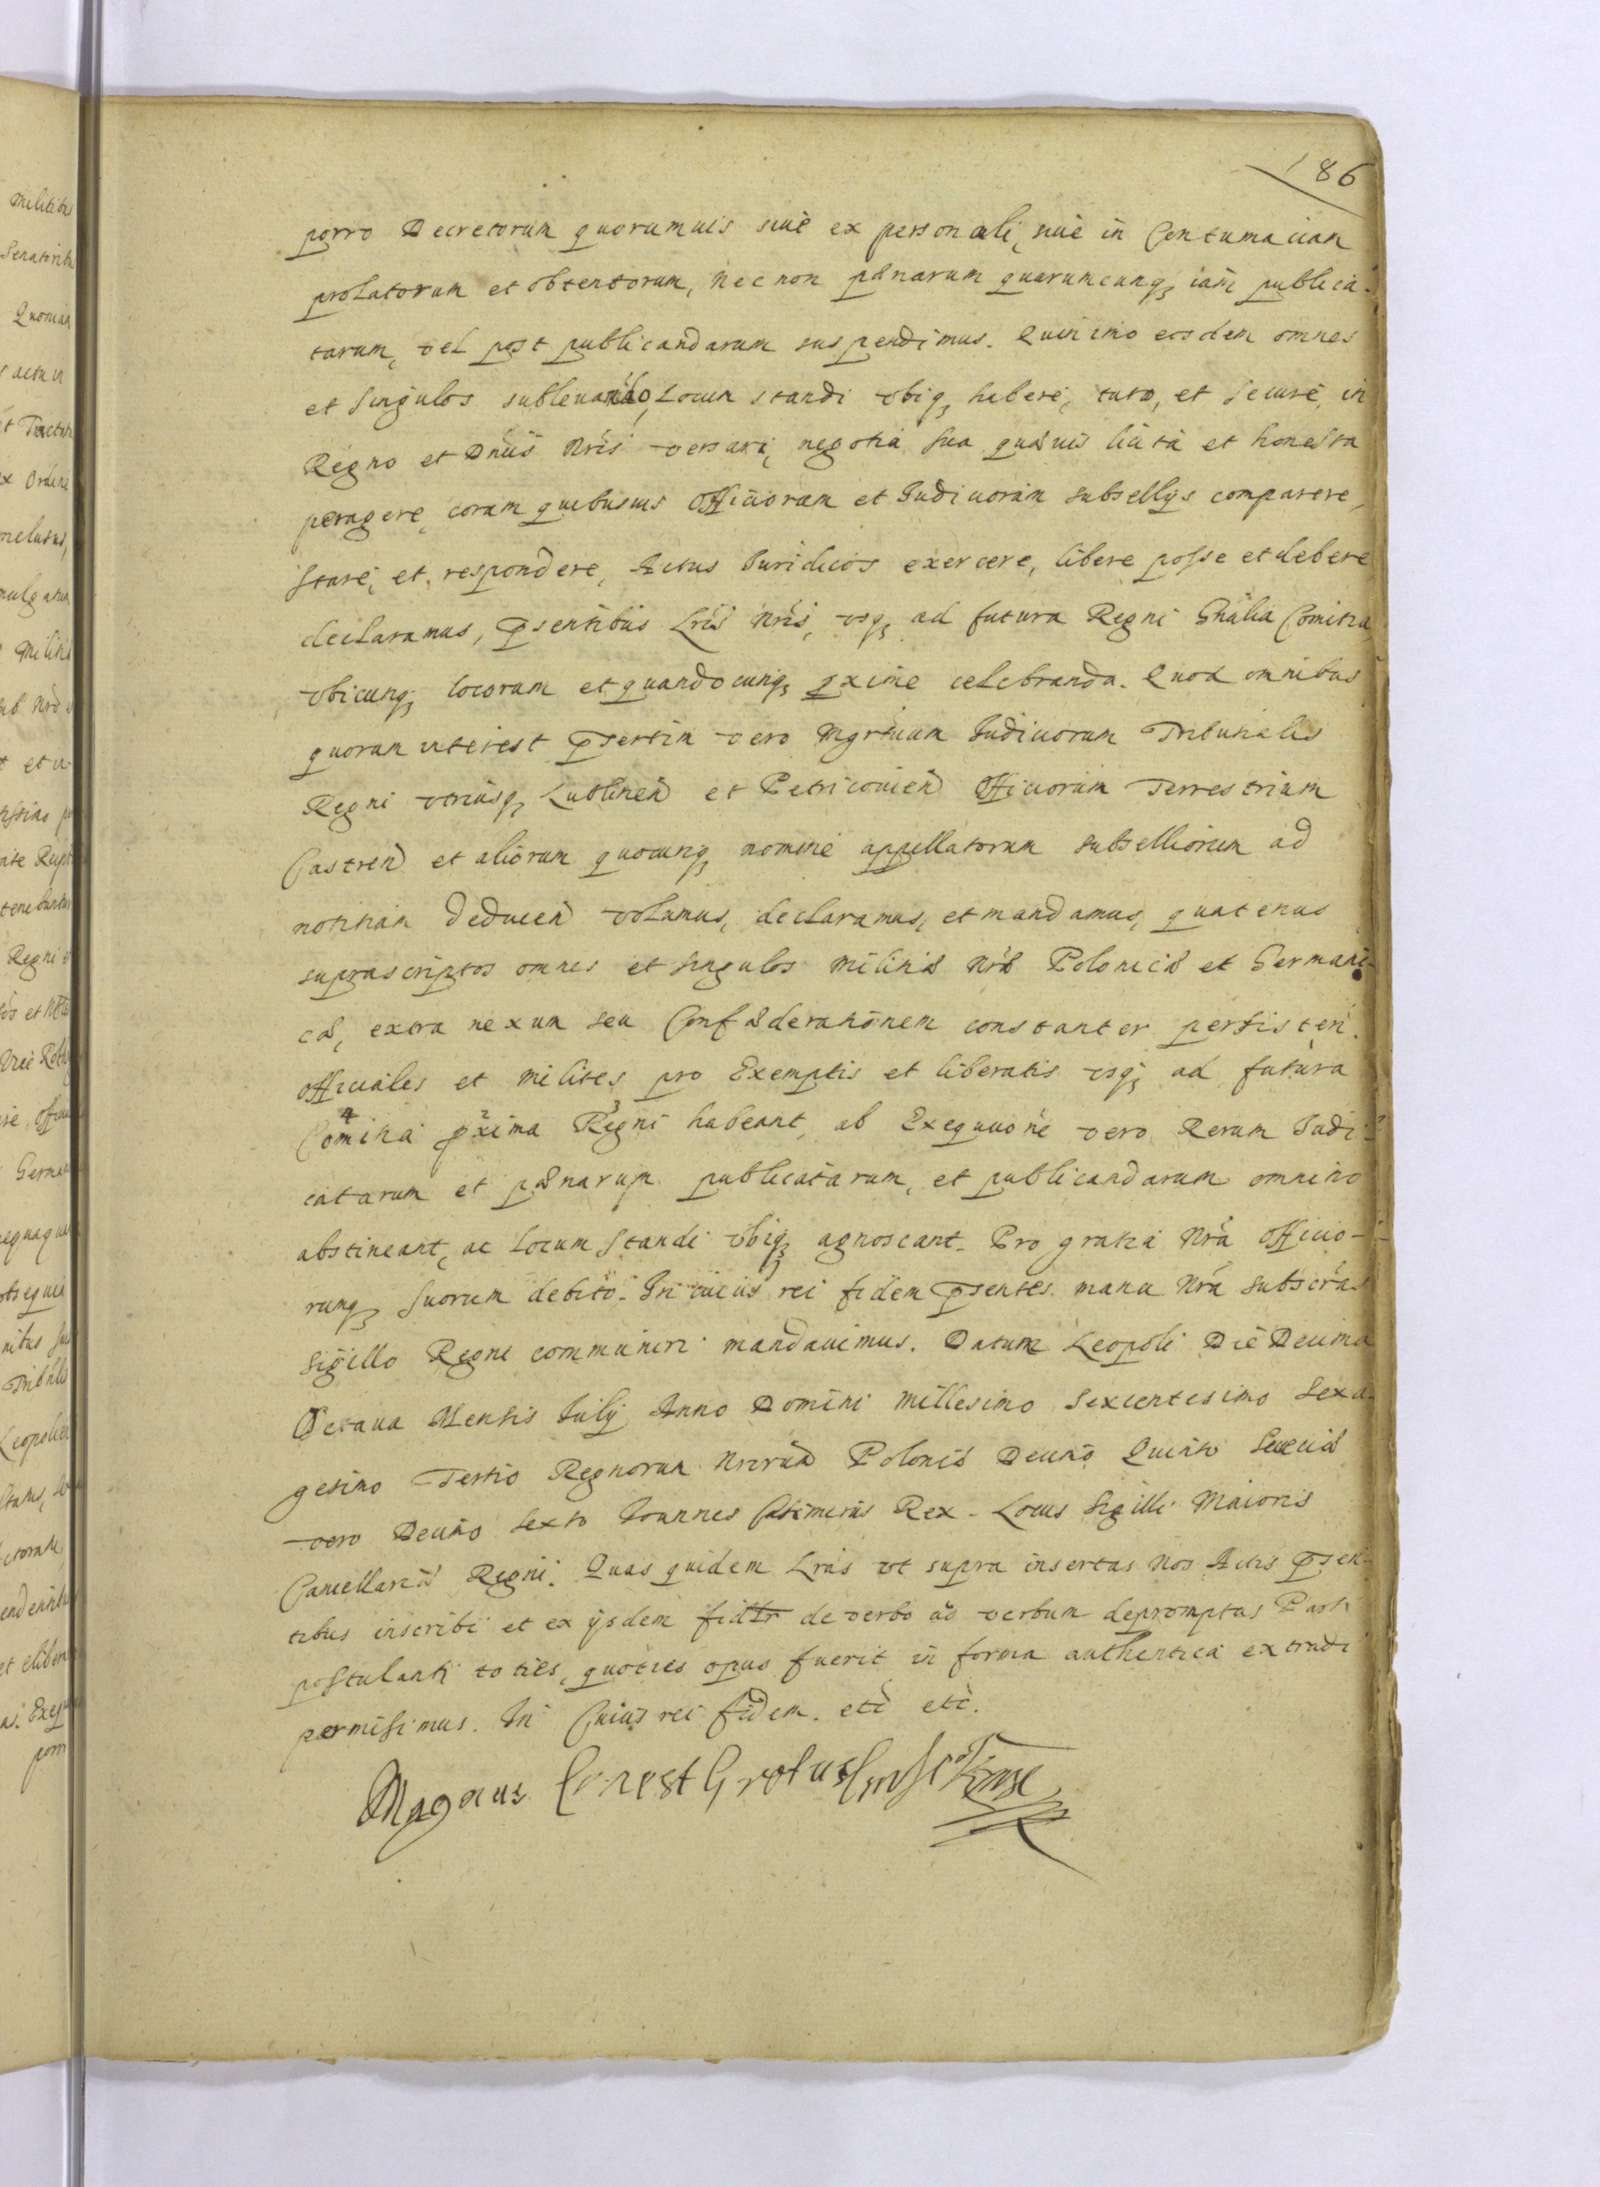 186
porro Decretorum quorumuis siuè ex personali, siuè in Contumaciam
prolatorum et obtentorum, nec non pænarum quaruncunq, iam publica-
tarum, vel post publicandarum suspendimus. Quin imo eosdem omnes
et singulos subleuando, Locum standi vbiq, habere, tuto, et securè, in
Regno et Dniis Nris versari, negotia sua quæuis licita et honesta
peragere, coram quibusuis Officiorum et Iudiciorum subsellijs comparere,
stare, et respondere, Actus Iuridicos exercere, libere posse et debere
declaramus, psentibus Lris Nris, vsq, ad futura Regni Gnalia Comitia
vbicunq, locorum et quandocunq, pxime celebranda. Quod omnibus
quorum interest psertim vero Mgrtuum Iudiciorum Tribunalis
Regni vtriusq, Lublinen et Petricouien Officiorum Terrestrium
Castren et aliorum quocunq nomine appellatorum subselliorum ad
notitiam deducen volumus, declaramus, et mandamus, quatenus
suprascriptos omnes et singulos militiæ Nræ Polonicæ et Germani-
cæ, extra nexum seu Confæderationem constanter persisten
officiales et milites, pro Exemptis et liberatis vsq, ad futura
Comitia pxima Regni habeant, ab Exequuone vero Rerum Iudi-
catarum et pænarum publicatarum, et publicandarum omnino
abstineant, ac Locum standi vbiq, agnoscant. Pro gratia Nra officio-
rumq, suorum debito. In cuius rei fidem psentes manu Nra subscras
sigillo Regni communiri mandauimus. Datum Leopoli Die Decima
Octaua Mensis Iulij Anno Domini Millesimo Sexcentesimo Sexa-
gesimo Tertio Regnorum Nrorum Poloniæ Decimo Quinto Sueciæ
vero Decimo sexto Ioannes Casimirus Rex. Locus Sigilli Maioris
Cancellariæ Regni. Quas quidem Lras vt supra insertas Nos Actis psen-
tibus inscribi et ex ijsdem fidlr de verbo ad verbum depromptas Parti
postulanti toties, quoties opus fuerit in forma authentica extradi
permisimus. In Cuius rei fidem. etc etc.
Magnus Ernest Grotus